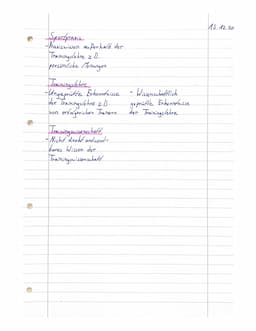 12.12.20
Sportpraxis
- Praxiswissen außerhalb der
Trainingslehre z.B.
persönliche Meinungen
Trainingslehre
- Ungeprüfte Erkenntnisse - Wissenschaftlich
der Trainingslehre z.B. geprüfte Erkenntnisse
von erfolgreichen Trainern der Trainingslehre
Trainingswissenschaft
- Nicht direkt
bares Wissen der
Trainingswissenschaft